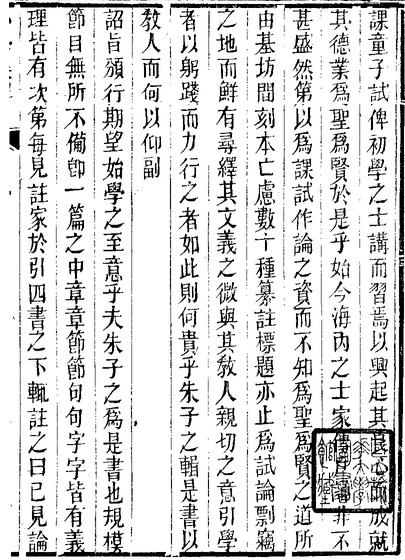 課童子試俾初學之士講而習焉以興起其良心而成就
其德業爲聖爲賢於是乎始今海內之士家傳非不
甚盛然第以爲課試作論之資而不知爲聖爲賢之道所
由基坊間刻本亡慮數十種纂註標題亦止爲試論剽竊
之地而鮮有尋繹其文義之微與其教人親切之意引學
者以躬踐而力行之者如此則何貴乎朱子之輯是書以
教人而何以仰副
詔旨頒行期望始學之至意乎夫朱子之爲是書也規模
節目無所不備卽一篇之中章章節節句句字字皆有義
理皆有次第每見註家於引四書之下輒註之曰已見論